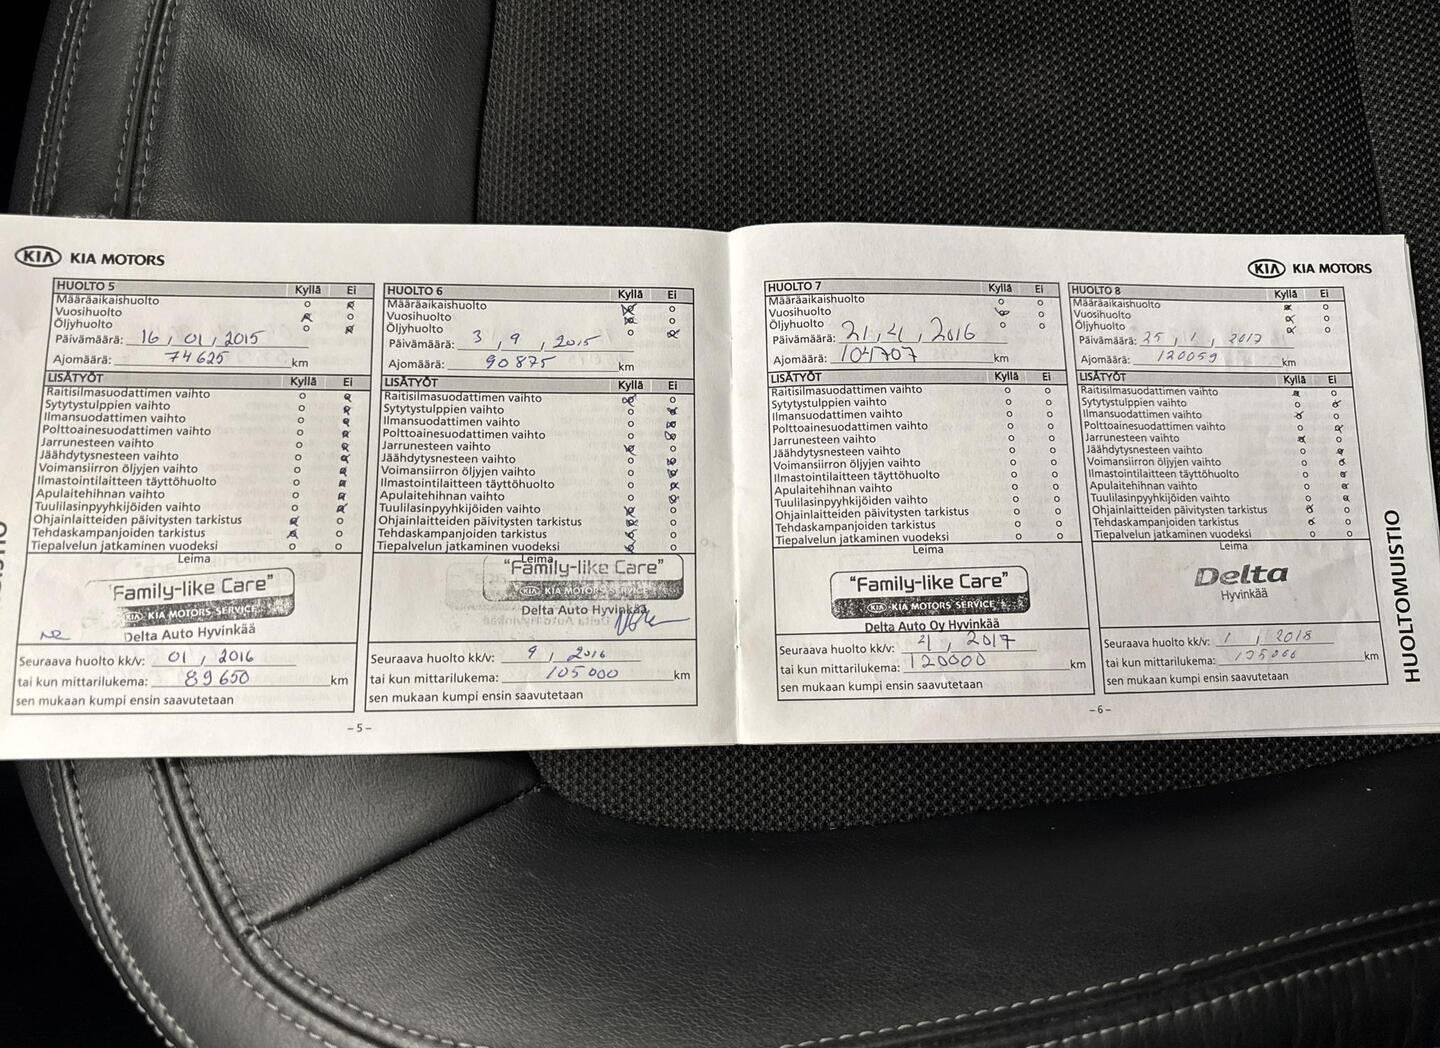 KIA KIA MOTORS
HUOLTO 5 Kyllä Ei
Määräaikaishuolto
Vuosihuolto
Öljyhuolto
Päivämäärä: 16, 01, 2015
Ajomäärä: 74625 km
LISÄTYÖT Kyllä Ei
Raitisilmasuodattimen vaihto
Sytytystulppien vaihto
Ilmansuodattimen vaihto
Polttoainesuodattimen vaihto
Jarrunesteen vaihto
Jäähdytysnesteen vaihto
Voimansiirron öljyjen vaihto
Ilmastointilaitteen täyttöhuolto
Apulaitehihnan vaihto
Tuulilasinpyyhkijöiden vaihto
Ohjainlaitteiden päivitysten tarkistus
Tehdaskampanjoiden tarkistus
Tiepalvelun jatkaminen vuodeksi
Leima
"Family-like Care"
KIA KIA MOTORS SERVICE
Delta Auto Hyvinkää
Seuraava huolto kk/v: 01, 2016
tai kun mittarilukema: 89650 km
sen mukaan kumpi ensin saavutetaan
HUOLTO 6 Kyllä Ei
Määräaikaishuolto
Vuosihuolto
Öljyhuolto
Päivämäärä: 3, 9, 2015
Ajomäärä: 90875 km
LISÄTYÖT Kyllä Ei
Raitisilmasuodattimen vaihto
Sytytystulppien vaihto
Ilmansuodattimen vaihto
Polttoainesuodattimen vaihto
Jarrunesteen vaihto
Jäähdytysnesteen vaihto
Voimansiirron öljyjen vaihto
Ilmastointilaitteen täyttöhuolto
Apulaitehihnan vaihto
Tuulilasinpyyhkijöiden vaihto
Ohjainlaitteiden päivitysten tarkistus
Tehdaskampanjoiden tarkistus
Tiepalvelun jatkaminen vuodeksi
Leima
"Family-like Care"
KIA KIA MOTORS SERVICE
Delta Auto Hyvinkää
Seuraava huolto kk/v: 9, 2016
tai kun mittarilukema: 105000 km
sen mukaan kumpi ensin saavutetaan
– 5 –
KIA KIA MOTORS
HUOLTO 7 Kyllä Ei
Määräaikaishuolto
Vuosihuolto
Öljyhuolto
Päivämäärä: 21, 4, 2016
Ajomäärä: 104707 km
LISÄTYÖT Kyllä Ei
Raitisilmasuodattimen vaihto
Sytytystulppien vaihto
Ilmansuodattimen vaihto
Polttoainesuodattimen vaihto
Jarrunesteen vaihto
Jäähdytysnesteen vaihto
Voimansiirron öljyjen vaihto
Ilmastointilaitteen täyttöhuolto
Apulaitehihnan vaihto
Tuulilasinpyyhkijöiden vaihto
Ohjainlaitteiden päivitysten tarkistus
Tehdaskampanjoiden tarkistus
Tiepalvelun jatkaminen vuodeksi
Leima
"Family-like Care"
KIA KIA MOTORS SERVICE
Delta Auto Oy Hyvinkää
Seuraava huolto kk/v: 4, 2017
tai kun mittarilukema: 120000 km
sen mukaan kumpi ensin saavutetaan
HUOLTO 8 Kyllä Ei
Määräaikaishuolto
Vuosihuolto
Öljyhuolto
Päivämäärä: 25, 1, 2017
Ajomäärä: 120059 km
LISÄTYÖT Kyllä Ei
Raitisilmasuodattimen vaihto
Sytytystulppien vaihto
Ilmansuodattimen vaihto
Polttoainesuodattimen vaihto
Jarrunesteen vaihto
Jäähdytysnesteen vaihto
Voimansiirron öljyjen vaihto
Ilmastointilaitteen täyttöhuolto
Apulaitehihnan vaihto
Tuulilasinpyyhkijöiden vaihto
Ohjainlaitteiden päivitysten tarkistus
Tehdaskampanjoiden tarkistus
Tiepalvelun jatkaminen vuodeksi
Leima
Delta
Hyvinkää
Seuraava huolto kk/v: 1, 2018
tai kun mittarilukema: km
sen mukaan kumpi ensin saavutetaan
– 6 –
HUOLTOMUISTIO